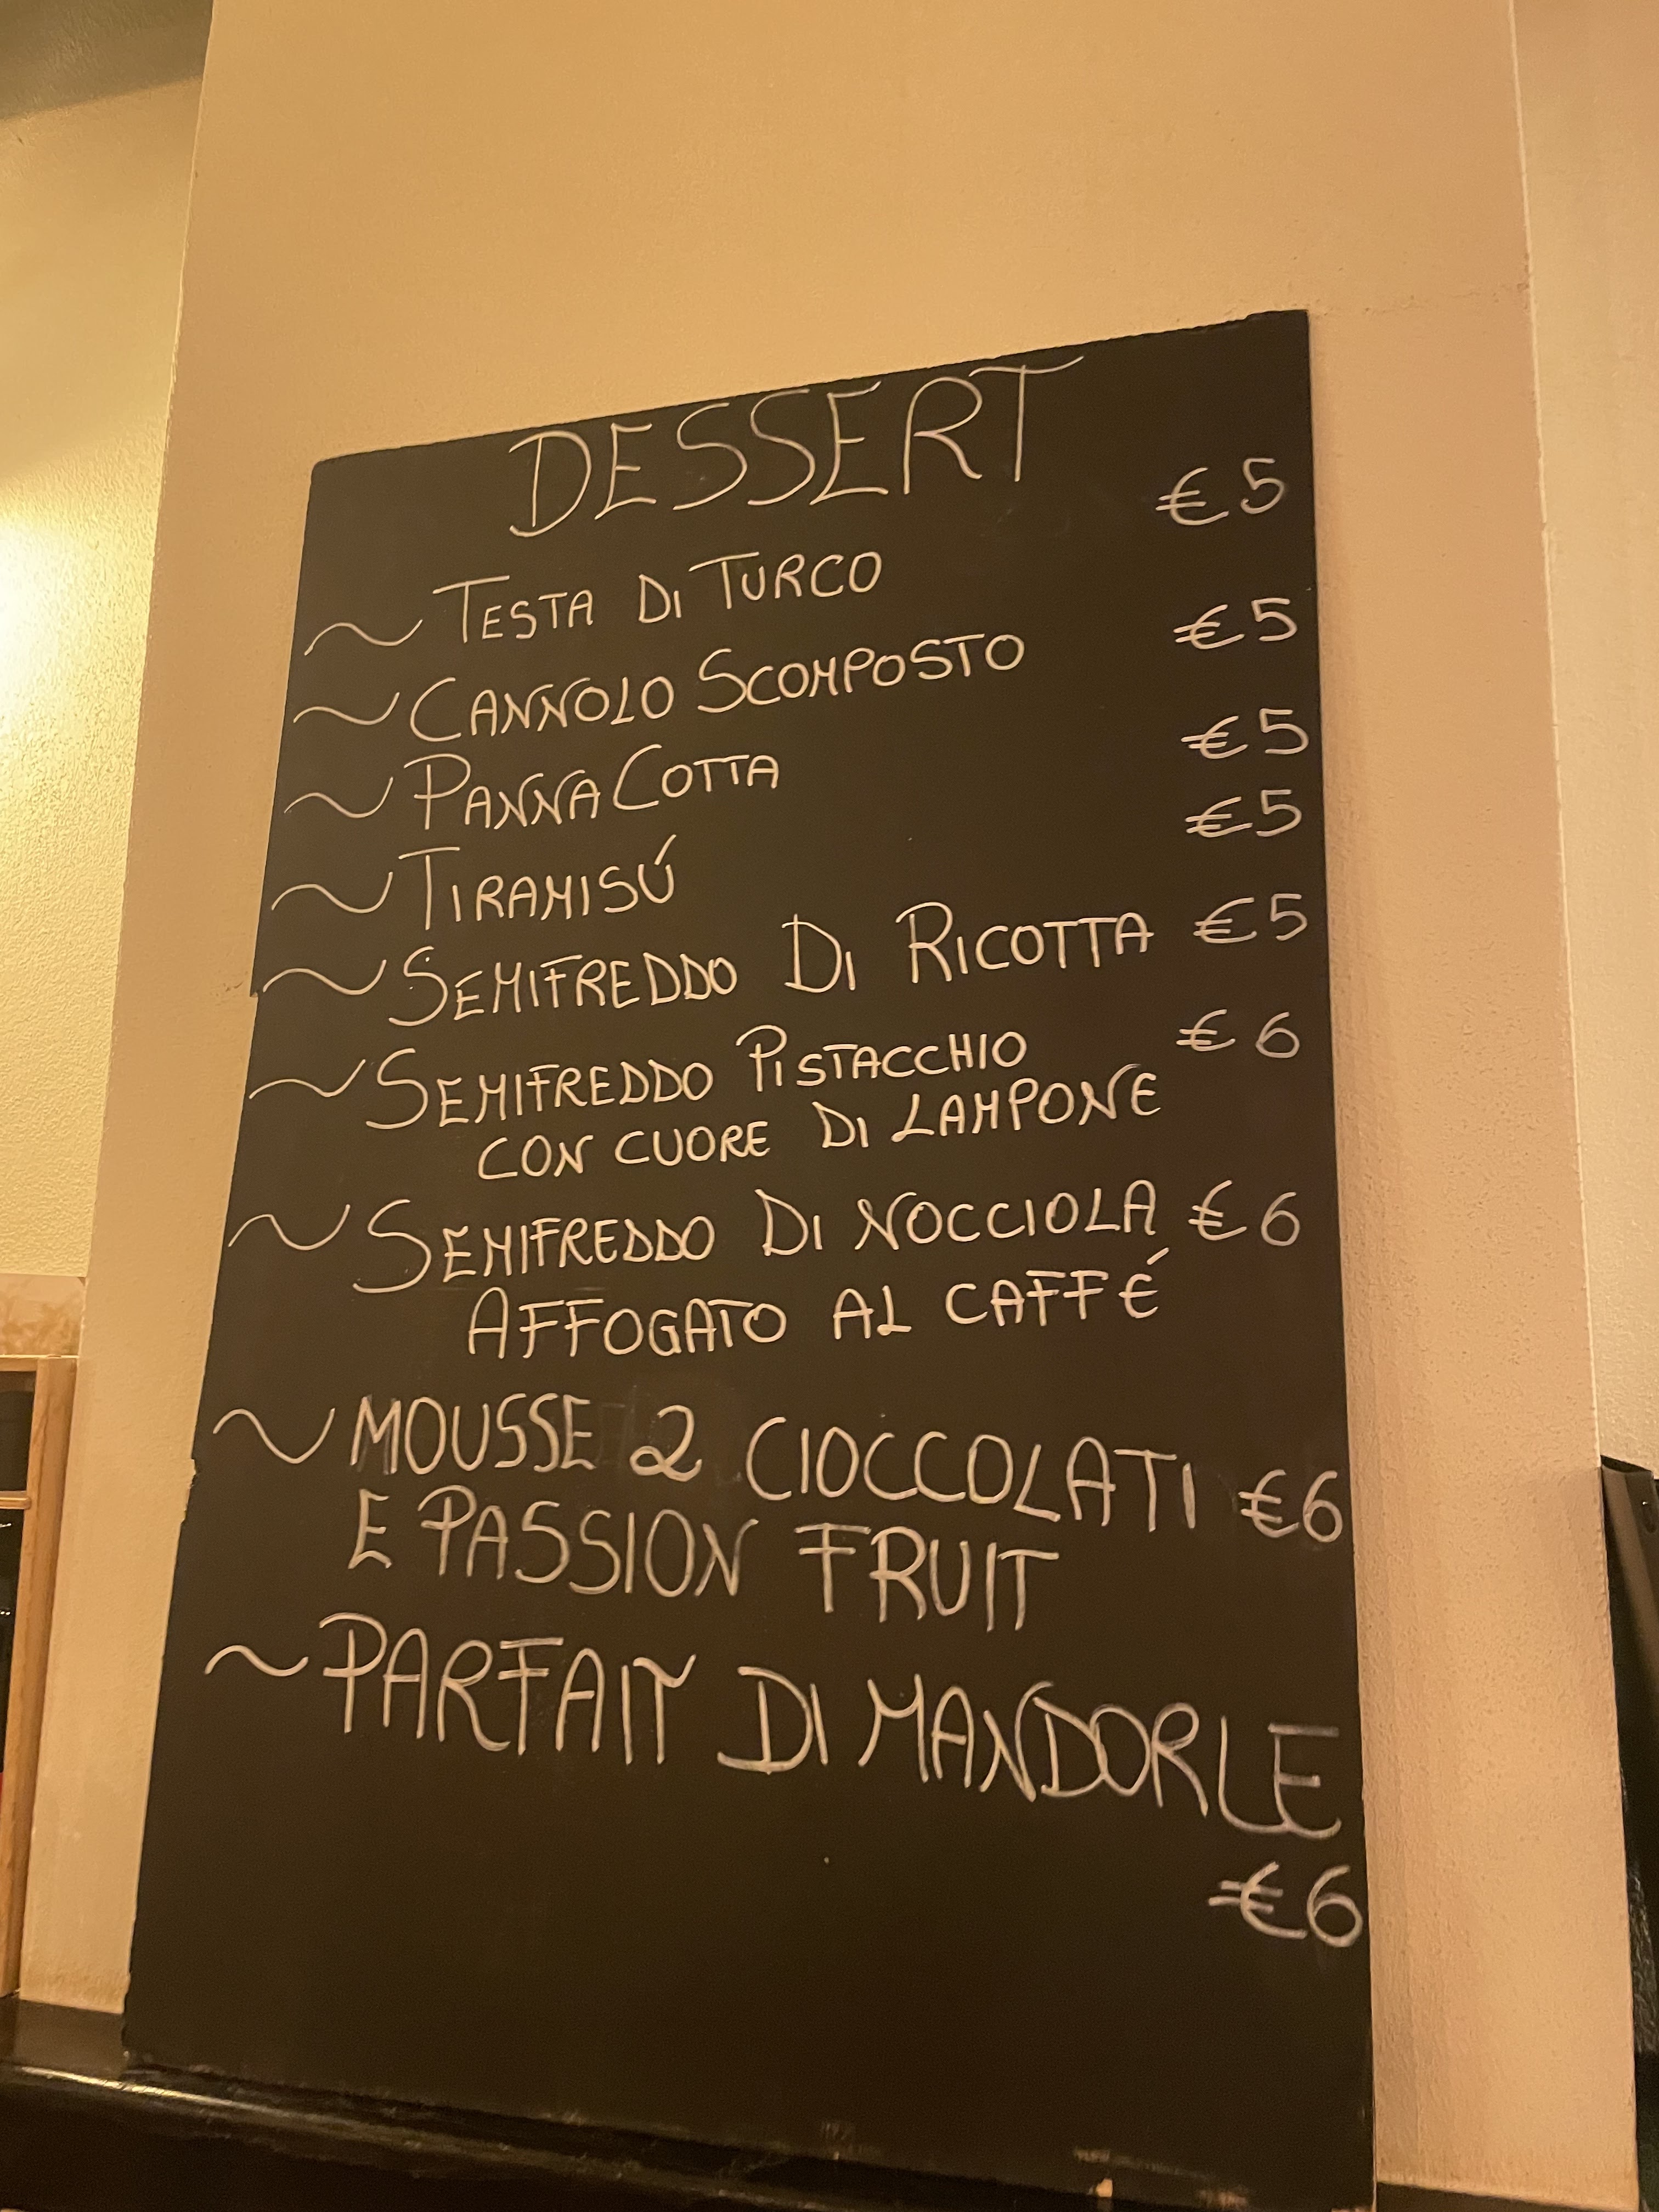 DESSERT
~ TESTA DI TURCO €5
~ CANNOLO SCOMPOSTO €5
~ PANNA COTTA €5
~ TIRAMISÚ €5
~ SEMIFREDDO DI RICOTTA €5
~ SEMIFREDDO PISTACCHIO €6
CON CUORE DI LAMPONE
~ SEMIFREDDO DI NOCCIOLA €6
AFFOGATO AL CAFFÉ
~ MOUSSE 2 CIOCCOLATI €6
E PASSION FRUIT
~ PARFAIT DI MANDORLE
€6